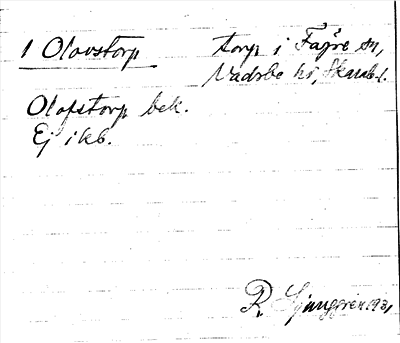 1 Olovstorp torp i Fägre sn,
Vadsbo hd, Skarab. l.
Olofstorp bek.
Ej i kb.
R. Ljunggren 1931